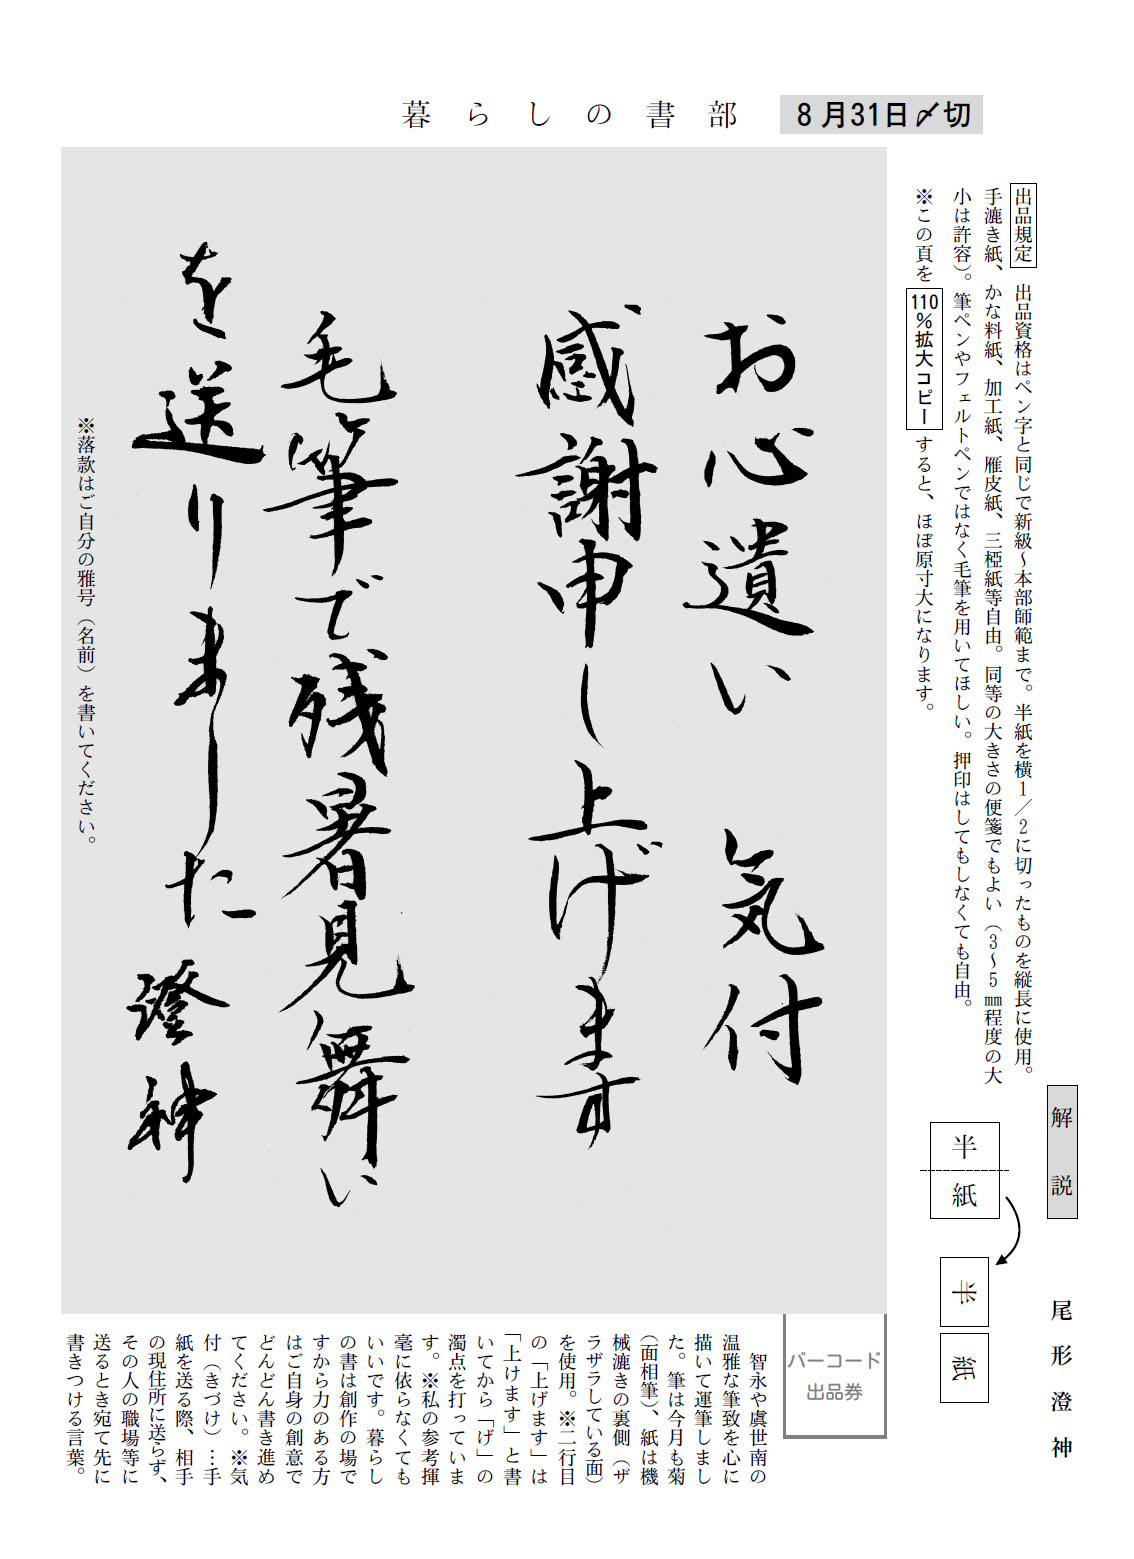 暮らしの書部
8月31日〆切
出品規定 出品資格はペン字と同じで新級〜本部師範まで。半紙を横1/2に切ったものを縦長に使用。
手漉き紙、かな料紙、加工紙、雁皮紙、三椏紙等自由。同等の大きさの便箋でもよい(3〜5㎜程度の大
小は許容)。筆ペンやフェルトペンではなく毛筆を用いてほしい。押印はしてもしなくても自由。
※この頁を110%拡大コピーすると、ほぼ原寸大になります。
解説
尾形澄神
半紙
半紙
お心遣い 気付
感謝申し上げます
毛筆で残暑見舞い
を送りました 澄神
※落款はご自分の雅号(名前)を書いてください。
バーコード
出品券
智永や虞世南の
温雅な筆致を心に
描いて運筆しまし
た。筆は今月も菊
(面相筆)、紙は機
械漉きの裏側(ザ
ラザラしている面)
を使用。※二行目
の「上げます」は
「上けます」と書
いてから「げ」の
濁点を打っていま
す。※私の参考揮
毫に依らなくても
いいです。暮らし
の書は創作の場で
すから力のある方
はご自身の創意で
どんどん書き進め
てください。※気
付(きづけ)…手
紙を送る際、相手
の現住所に送らず、
その人の職場等に
送るとき宛て先に
書きつける言葉。